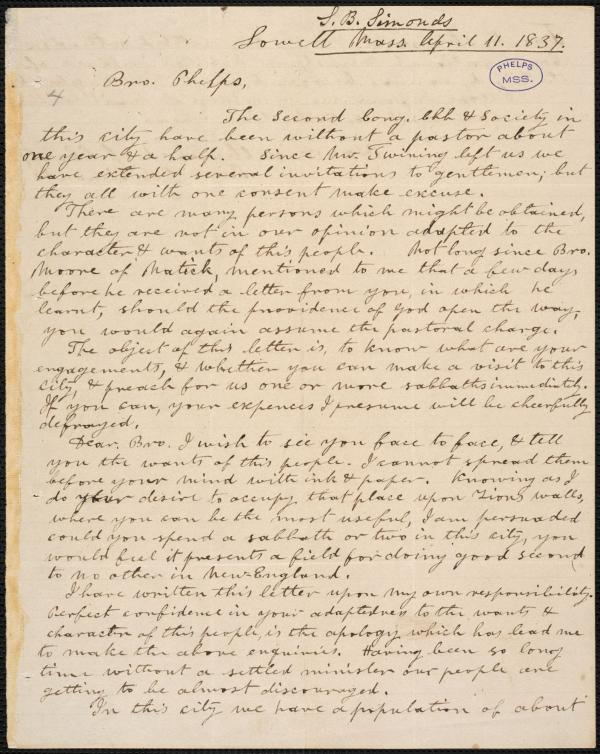 S. B. Simonds
Lowell Mass. April 11. 1837.
PHELPS
MSS.
4
Bro. Phelps,
The Second Cong. Chh & Society in
this city have been without a pastor about
one year & a half. Since Mr. Twining left us we
have extended several invitations to gentlemen; but
they all with one consent make excuse.
There are many persons which might be obtained,
but they are not in our opinion adapted to the
character & wants of this people. Not long since Bro.
Moore of Natick, mentioned to me that a few days
before he received a letter from you, in which he
learnt, should the providence of God open the way,
you would again assume the pastoral charge.
The object of this letter is, to know what are your
engagements, & whether you can make a visit to this
city, & preach for us one or more sabbaths immediately.
If you can, your expences I presume will be cheerfully
defrayed.
Dear. Bro. I wish to see you face to face, & tell
you the wants of this people. I cannot spread them
before your mind with ink & paper. Knowing as I
do your desire to occupy that place upon Zions walls,
where you can be the most useful, I am persuaded
could you spend a sabbath or two in this city, you
would feel it presents a field for doing good second
to no other in New-England.
I have written this letter upon my own responsibility.
Perfect confidence in your adaptedness to the wants &
character of this people, is the apology which has lead me
to make the above enquiries. Having been so long
time without a settled minister our people are
getting to be almost discouraged.
In this city we have a population of about